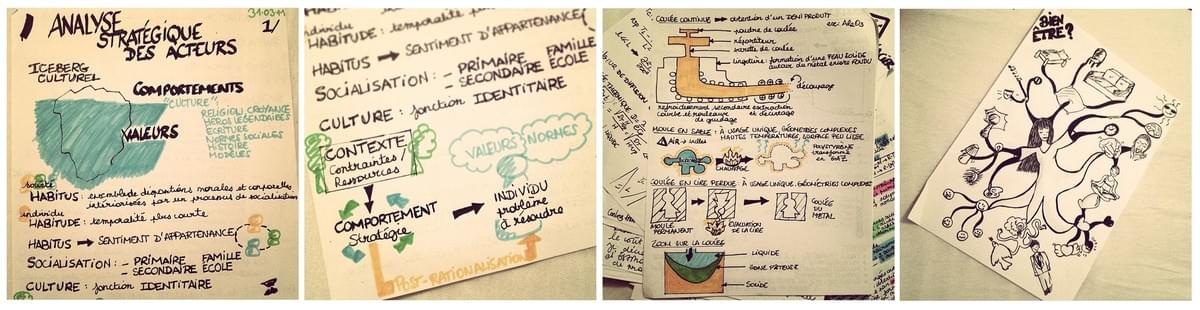 31.03.11
1/
ANALYSE
STRATÉGIQUE
DES ACTEURS
ICEBERG
CULTUREL
COMPORTEMENTS
"CULTURE"
RELIGION CROYANCE
HÉROS LÉGENDAIRES
ÉCRITURE
NORMES SOCIALES
HISTOIRE
MODÈLES
VALEURS
société
HABITUS : ensemble de dispositions morales et corporelles
intériorisées par un processus de socialisation
individu
HABITUDE : temporalité plus courte
HABITUS → SENTIMENT D'APPARTENANCE
SOCIALISATION : - PRIMAIRE FAMILLE
- SECONDAIRE ÉCOLE
CULTURE : fonction IDENTITAIRE
individu
HABITUDE : temporalité
HABITUS → SENTIMENT D'APPARTENANCE
SOCIALISATION : - PRIMAIRE FAMILLE
- SECONDAIRE ÉCOLE
CULTURE : fonction IDENTITAIRE
CONTEXTE
Contraintes/
Ressources
VALEURS
NORMES
COMPORTEMENT
Stratégie
INDIVIDU
problème
à résoudre
POST-RATIONALISATION
COULÉE CONTINUE → obtention d'un DEMI PRODUIT
poudre de coulée
répartiteur
busette de coulée
lingotière : formation d'une PEAU SOLIDE
autour du métal encore FONDU
découpage
refroidissement secondaire
courbe et rouleaux
de guidage
extraction
et décintrage
MOULE EN SABLE : À USAGE UNIQUE, GÉOMÉTRIES COMPLEXES
HAUTES TEMPÉRATURES, SURFACE PEU LISSE
AIR → bulles
CHAUFFAGE
POLYSTYRÈNE
transformé
en GAZ
COULÉE EN CIRE PERDUE : À USAGE UNIQUE, GÉOMÉTRIES COMPLEXES
MOULE
PERMANENT
ÉVACUATION
DE LA CIRE
COULÉE
DU
METAL
ZOOM SUR LA COULÉE
LIQUIDE
ZONE PÂTEUSE
SOLIDE
BIEN
ÊTRE?